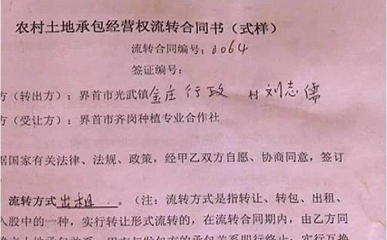 农村土地承包经营权流转合同书（式样）
流转合同编号：0064
签证编号：
方（转出方）：界首市光武镇金庄行政村刘志儒
方（受让方）：界首市齐岗种植专业合作社
据国家有关法律、法规、政策，经甲乙双方自愿、协商同意，签订
流转方式出租。（注：流转方式是指转让、转包、出租、
入股中的一种，实行转让形式流转的，在流转合同期内，由乙方同